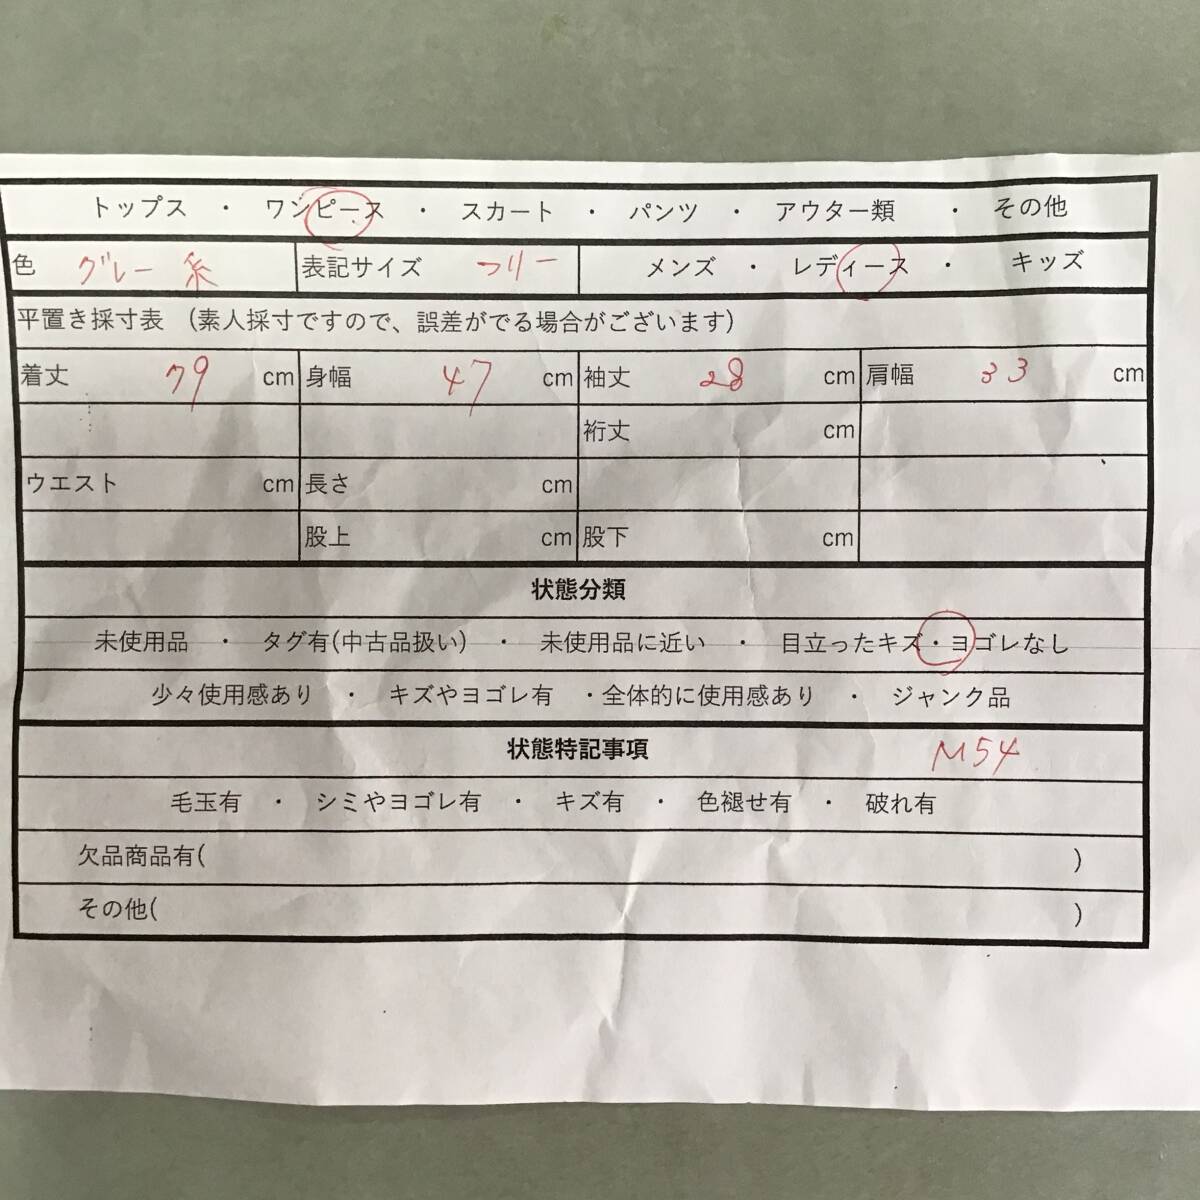 トップス ・ ワンピース ・ スカート ・ パンツ ・ アウター類 ・ その他
色 グレー系 表記サイズ フリー メンズ ・ レディース ・ キッズ
平置き採寸表 （素人採寸ですので、誤差がでる場合がございます）
着丈 79 cm 身幅 47 cm 袖丈 28 cm 肩幅 33 cm
裄丈 cm
ウエスト cm 長さ cm
股上 cm 股下 cm
状態分類
未使用品 ・ タグ有(中古品扱い) ・ 未使用品に近い ・ 目立ったキズ・ヨゴレなし
少々使用感あり ・ キズやヨゴレ有 ・全体的に使用感あり ・ ジャンク品
状態特記事項 M54
毛玉有 ・ シミやヨゴレ有 ・ キズ有 ・ 色褪せ有 ・ 破れ有
欠品商品有( )
その他( )